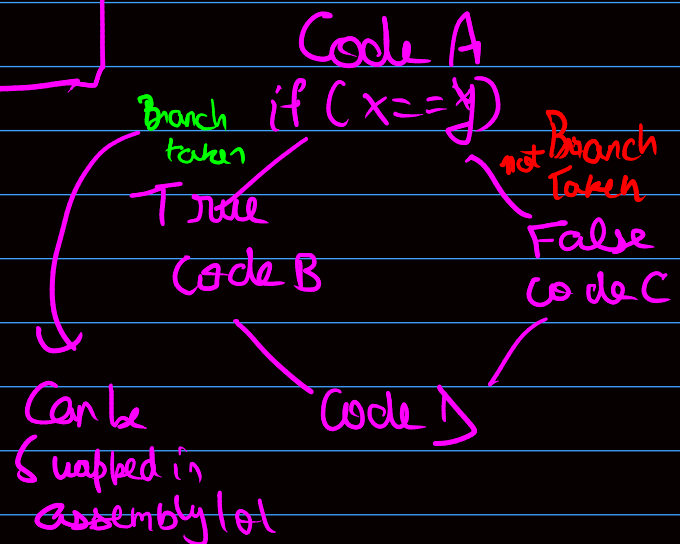 Code A
if (x==y)
Branch
taken
not Branch
Taken
True
Code B
False
Code C
Code D
Can be
Swapped in
assembly lol